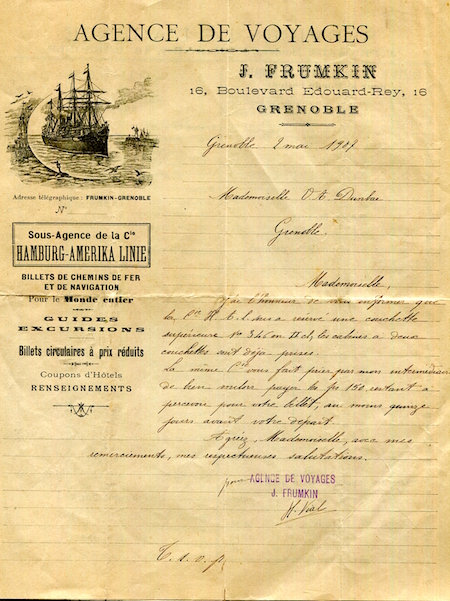 AGENCE DE VOYAGES
J. FRUMKIN
16, Boulevard Edouard-Rey, 16
GRENOBLE
Adresse télégraphique : FRUMKIN-GRENOBLE
N°
Sous-Agence de la Cie
HAMBURG-AMERIKA LINIE
BILLETS DE CHEMINS DE FER
ET DE NAVIGATION
Pour le Monde entier
GUIDES
EXCURSIONS
Billets circulaires à prix réduits
Coupons d'Hôtels
RENSEIGNEMENTS
Grenoble 2 mai 1907
Mademoiselle Dunbar
Grenoble
Mademoiselle,
J'ai l'honneur de vous informer que
la Cie H. A. l. a reservé une couchette
superieure No 346 en cl, les cabines a deux
couchettes sont deja prises.
La même Cie vous fait prier par mon intermédiaire
de bien vouloir payer les fr 150, restant a
percevoir pour votre billet, au moins quinze
jours avant votre départ.
Agréez, Mademoiselle, avec mes
remerciements, mes respectueuses salutations.
pour AGENCE DE VOYAGES
J. FRUMKIN
H. Vial